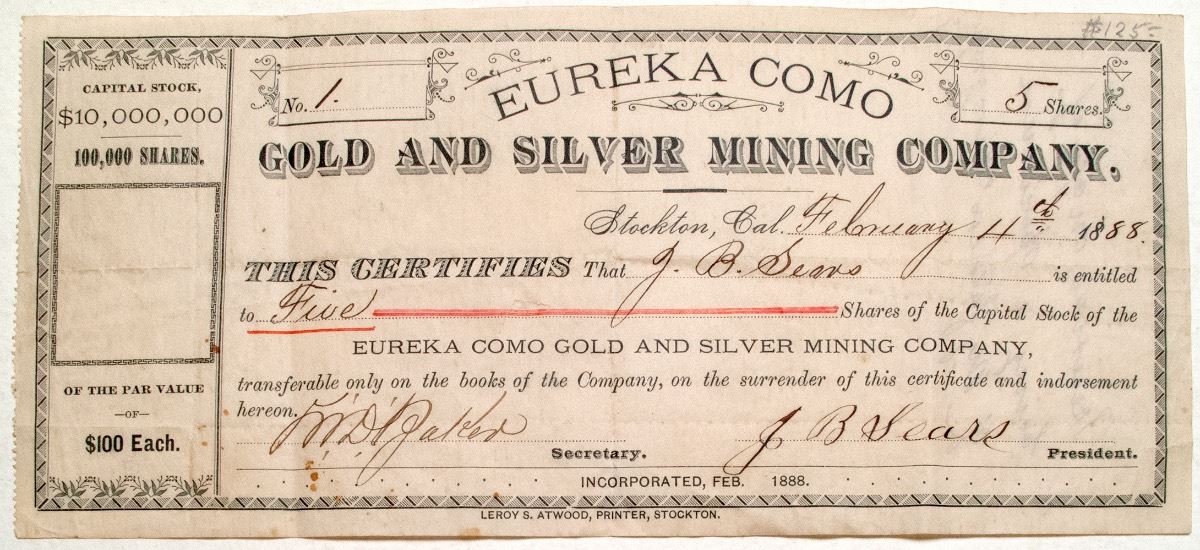 $125-
CAPITAL STOCK,
$10,000,000
100,000 SHARES.
OF THE PAR VALUE
—OF—
$100 Each.
No. 1.
EUREKA COMO
5 Shares.
GOLD AND SILVER MINING COMPANY.
Stockton, Cal. February 4th 1888.
THIS CERTIFIES That J. B. Sears is entitled
to Five Shares of the Capital Stock of the
EUREKA COMO GOLD AND SILVER MINING COMPANY,
transferable only on the books of the Company, on the surrender of this certificate and indorsement
hereon.
J B Sears
Secretary. President.
INCORPORATED, FEB. 1888.
LEROY S. ATWOOD, PRINTER, STOCKTON.